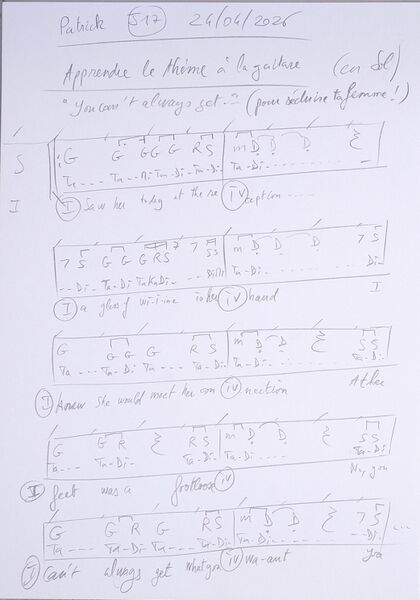 Patrick S17 24/04/2026
Apprendre le thème à la guitare (en Sol)
"You can't always get.." (pour séduire ta femme!)
S G G GG G R S m D D
I Ta - - - Ta - Di Ta - Di Ta - Di Ta - Di
I Saw her today at the re IV ception
7 S G G G R S 7 SS m D D D 7 S
- - Di - Ta - Di Ta Ka Di - Di Di Ta - Di Di -
I a glass of wi-i-ne in her IV hand I
G G G G R S m D D SS
Ta - - - Ta - Di Ta - - - Ta - Di Ta - Di Ta - Di
I knew she would meet her con IV nection At her
G G R R S m D D SS
Ta - - - Ta - Di - Ta - Di Ta - Di Ta - Di
I feet was a footloose IV No, you
G G R G R S m D D 7 S ...
Ta - - - Ta - Di - Ta - - - Ta - Di Ta - Di - - Di -
I Can't always get what you IV wa-ant you